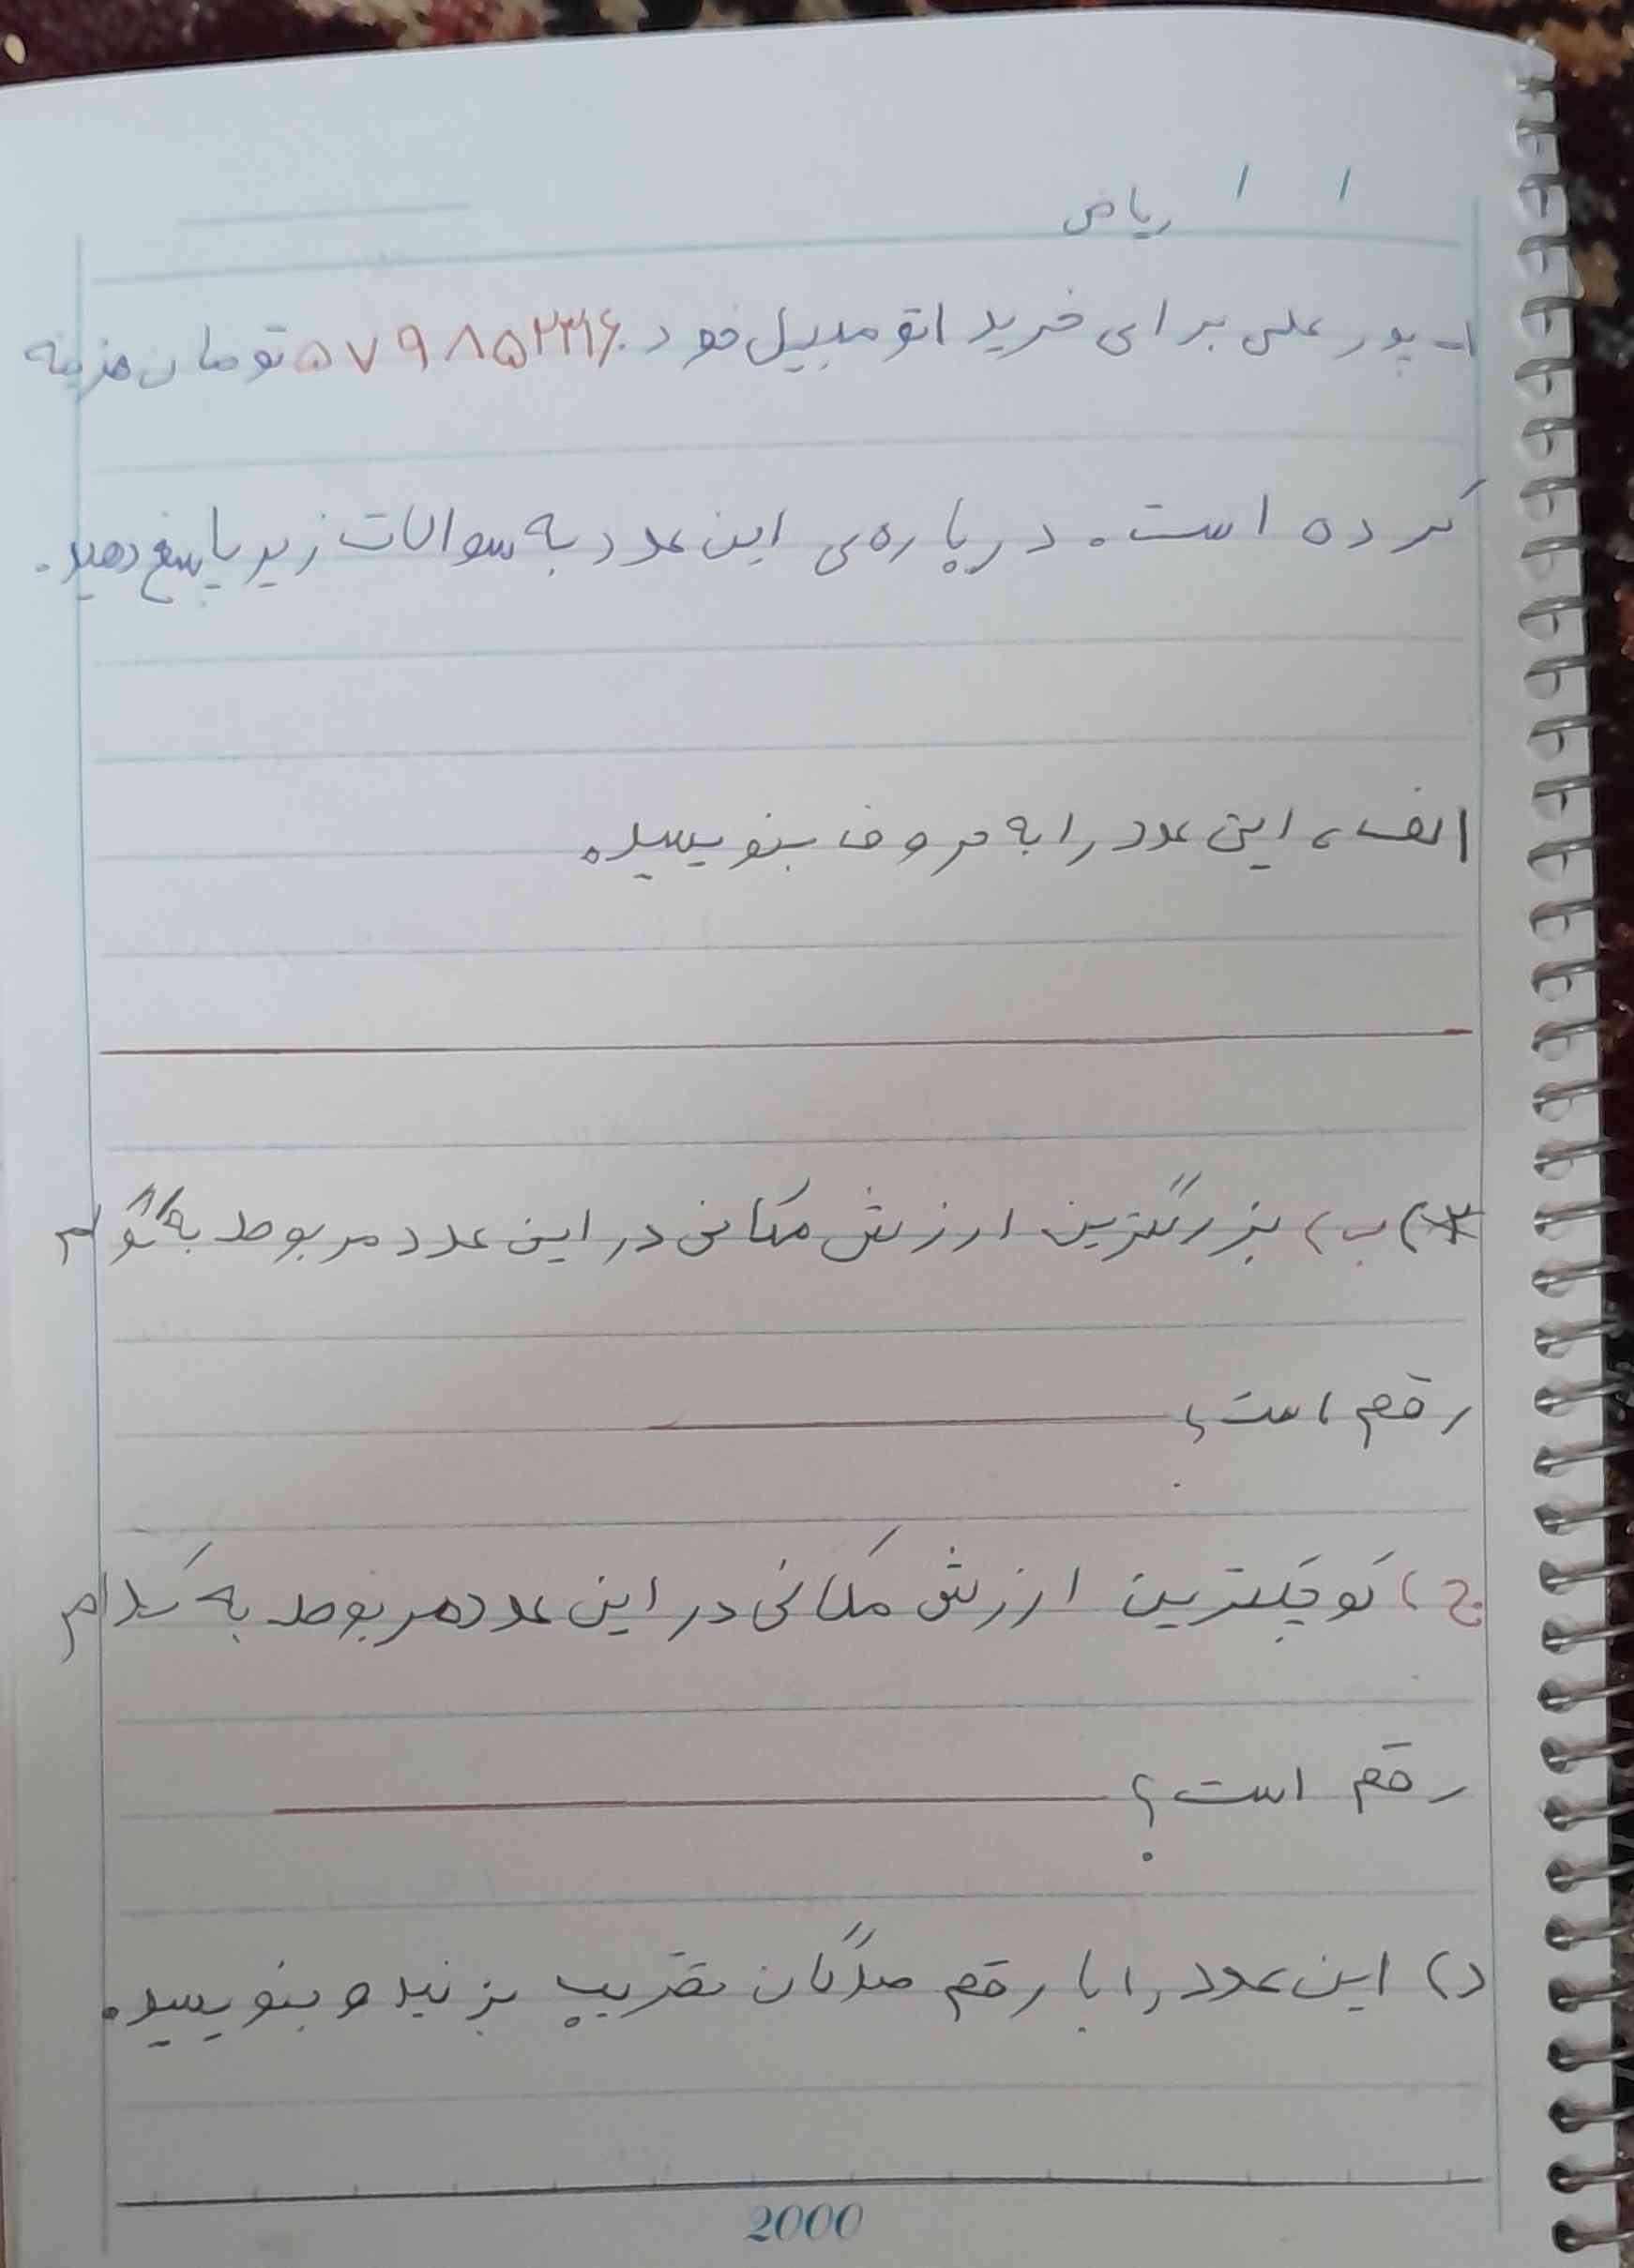 ریاض
۱- پدر علی برای خرید اتومبیل خود تومان هزینه
کرده است. درباره‌ی این عدد به سوالات زیر پاسخ دهید.
الف) این عدد را به حروف بنویسید.
*) ب) بزرگترین ارزش مکانی در این عدد مربوط به کدام
رقم است؟
ج) کوچکترین ارزش مکانی در این عدد مربوط به کدام
رقم است؟
د) این عدد را با رقم صدگان تقریب بزنید و بنویسید.
2000